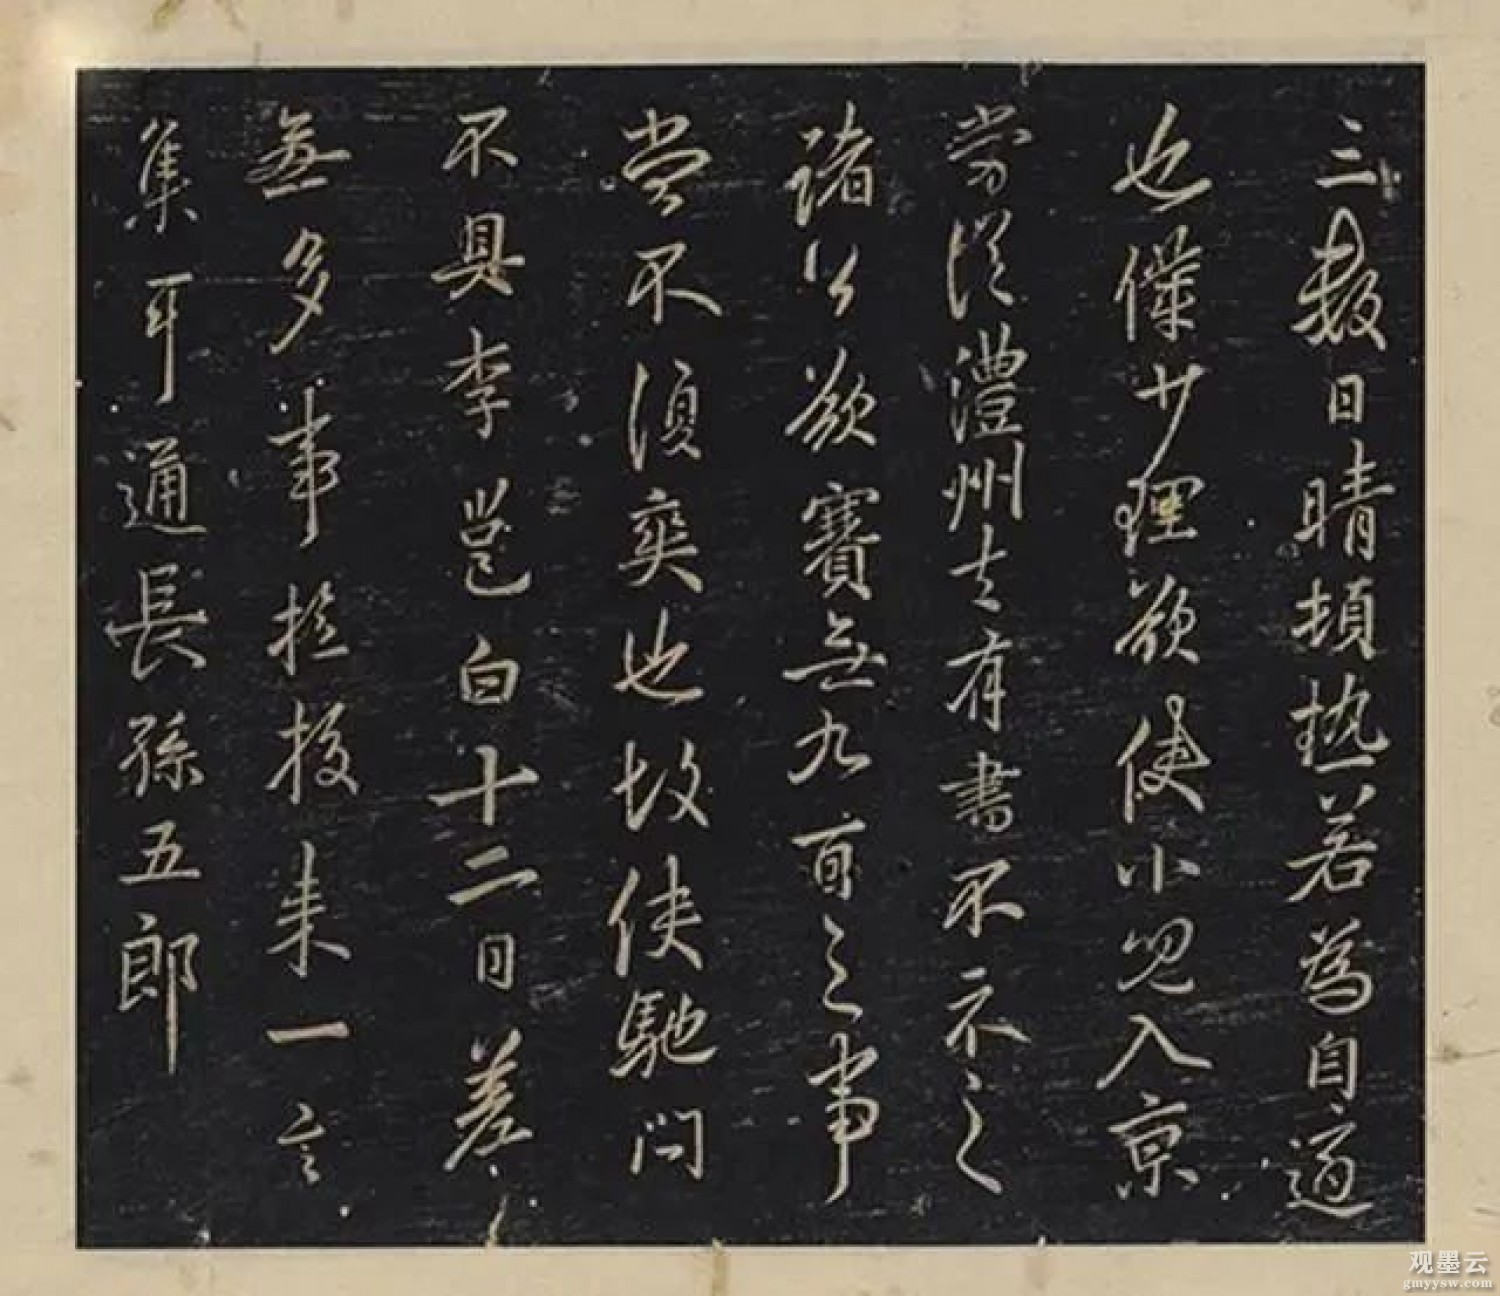 三數日晴頓热若為自適
也僕少理欲使小兒入京
勞從澧州去有書不示之
諸公欲賽無九百之事
當不須奕也故使馳問
不具李邕白十二日若
無多事撿校来一言
集耳通長孫五郎
观墨云
gmyysw.com